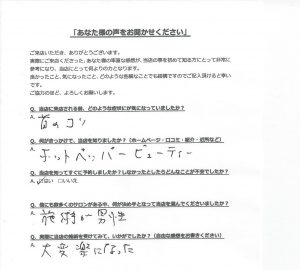 「あなた様の声をお聞かせください」
ご来店いただき、ありがとうございます。
実際にご来店くださった、あなた様の率直な感想が、当店の事を初めて知る方にとって非常に
参考になり、当店にとって何よりの力となります。
良かったこと、気になったこと、どのような些細なことでも結構ですのでご記入頂けると幸い
です。
ご協力のほど、よろしくお願いします。
Q. 当店に来店される前、どのような症状にが気になっていましたか?
A. 首のコリ
Q. 何がきっかけで、当店を知りましたか?（ホームページ・口コミ・紹介・近所など）
A. ホットペッパービューティー
Q. 当店を知ってすぐに予約しましたか?しなかったとしたらどんなことが不安でしたか?
A. はい □いいえ
Q. 他にも数多くのサロンがある中、何が決め手となって当店を選んでくださいましたか?
A. 施術が男性
Q. 実際に当店の施術を受けてみて、いかがでしたか?（自由な感想をお書きください）
A. 大変楽になった